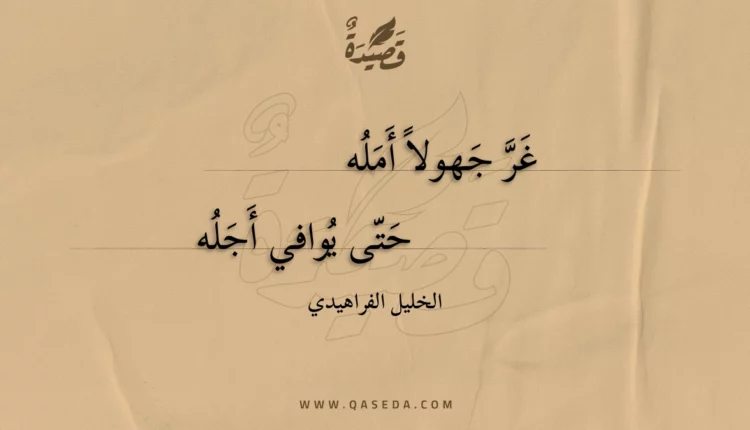 قَصِيدَةٌ
غَرَّ جَهولاً أَمَلُه
حَتّى يُوافي أَجَلُه
الخليل الفراهيدي
WWW.QASEDA.COM